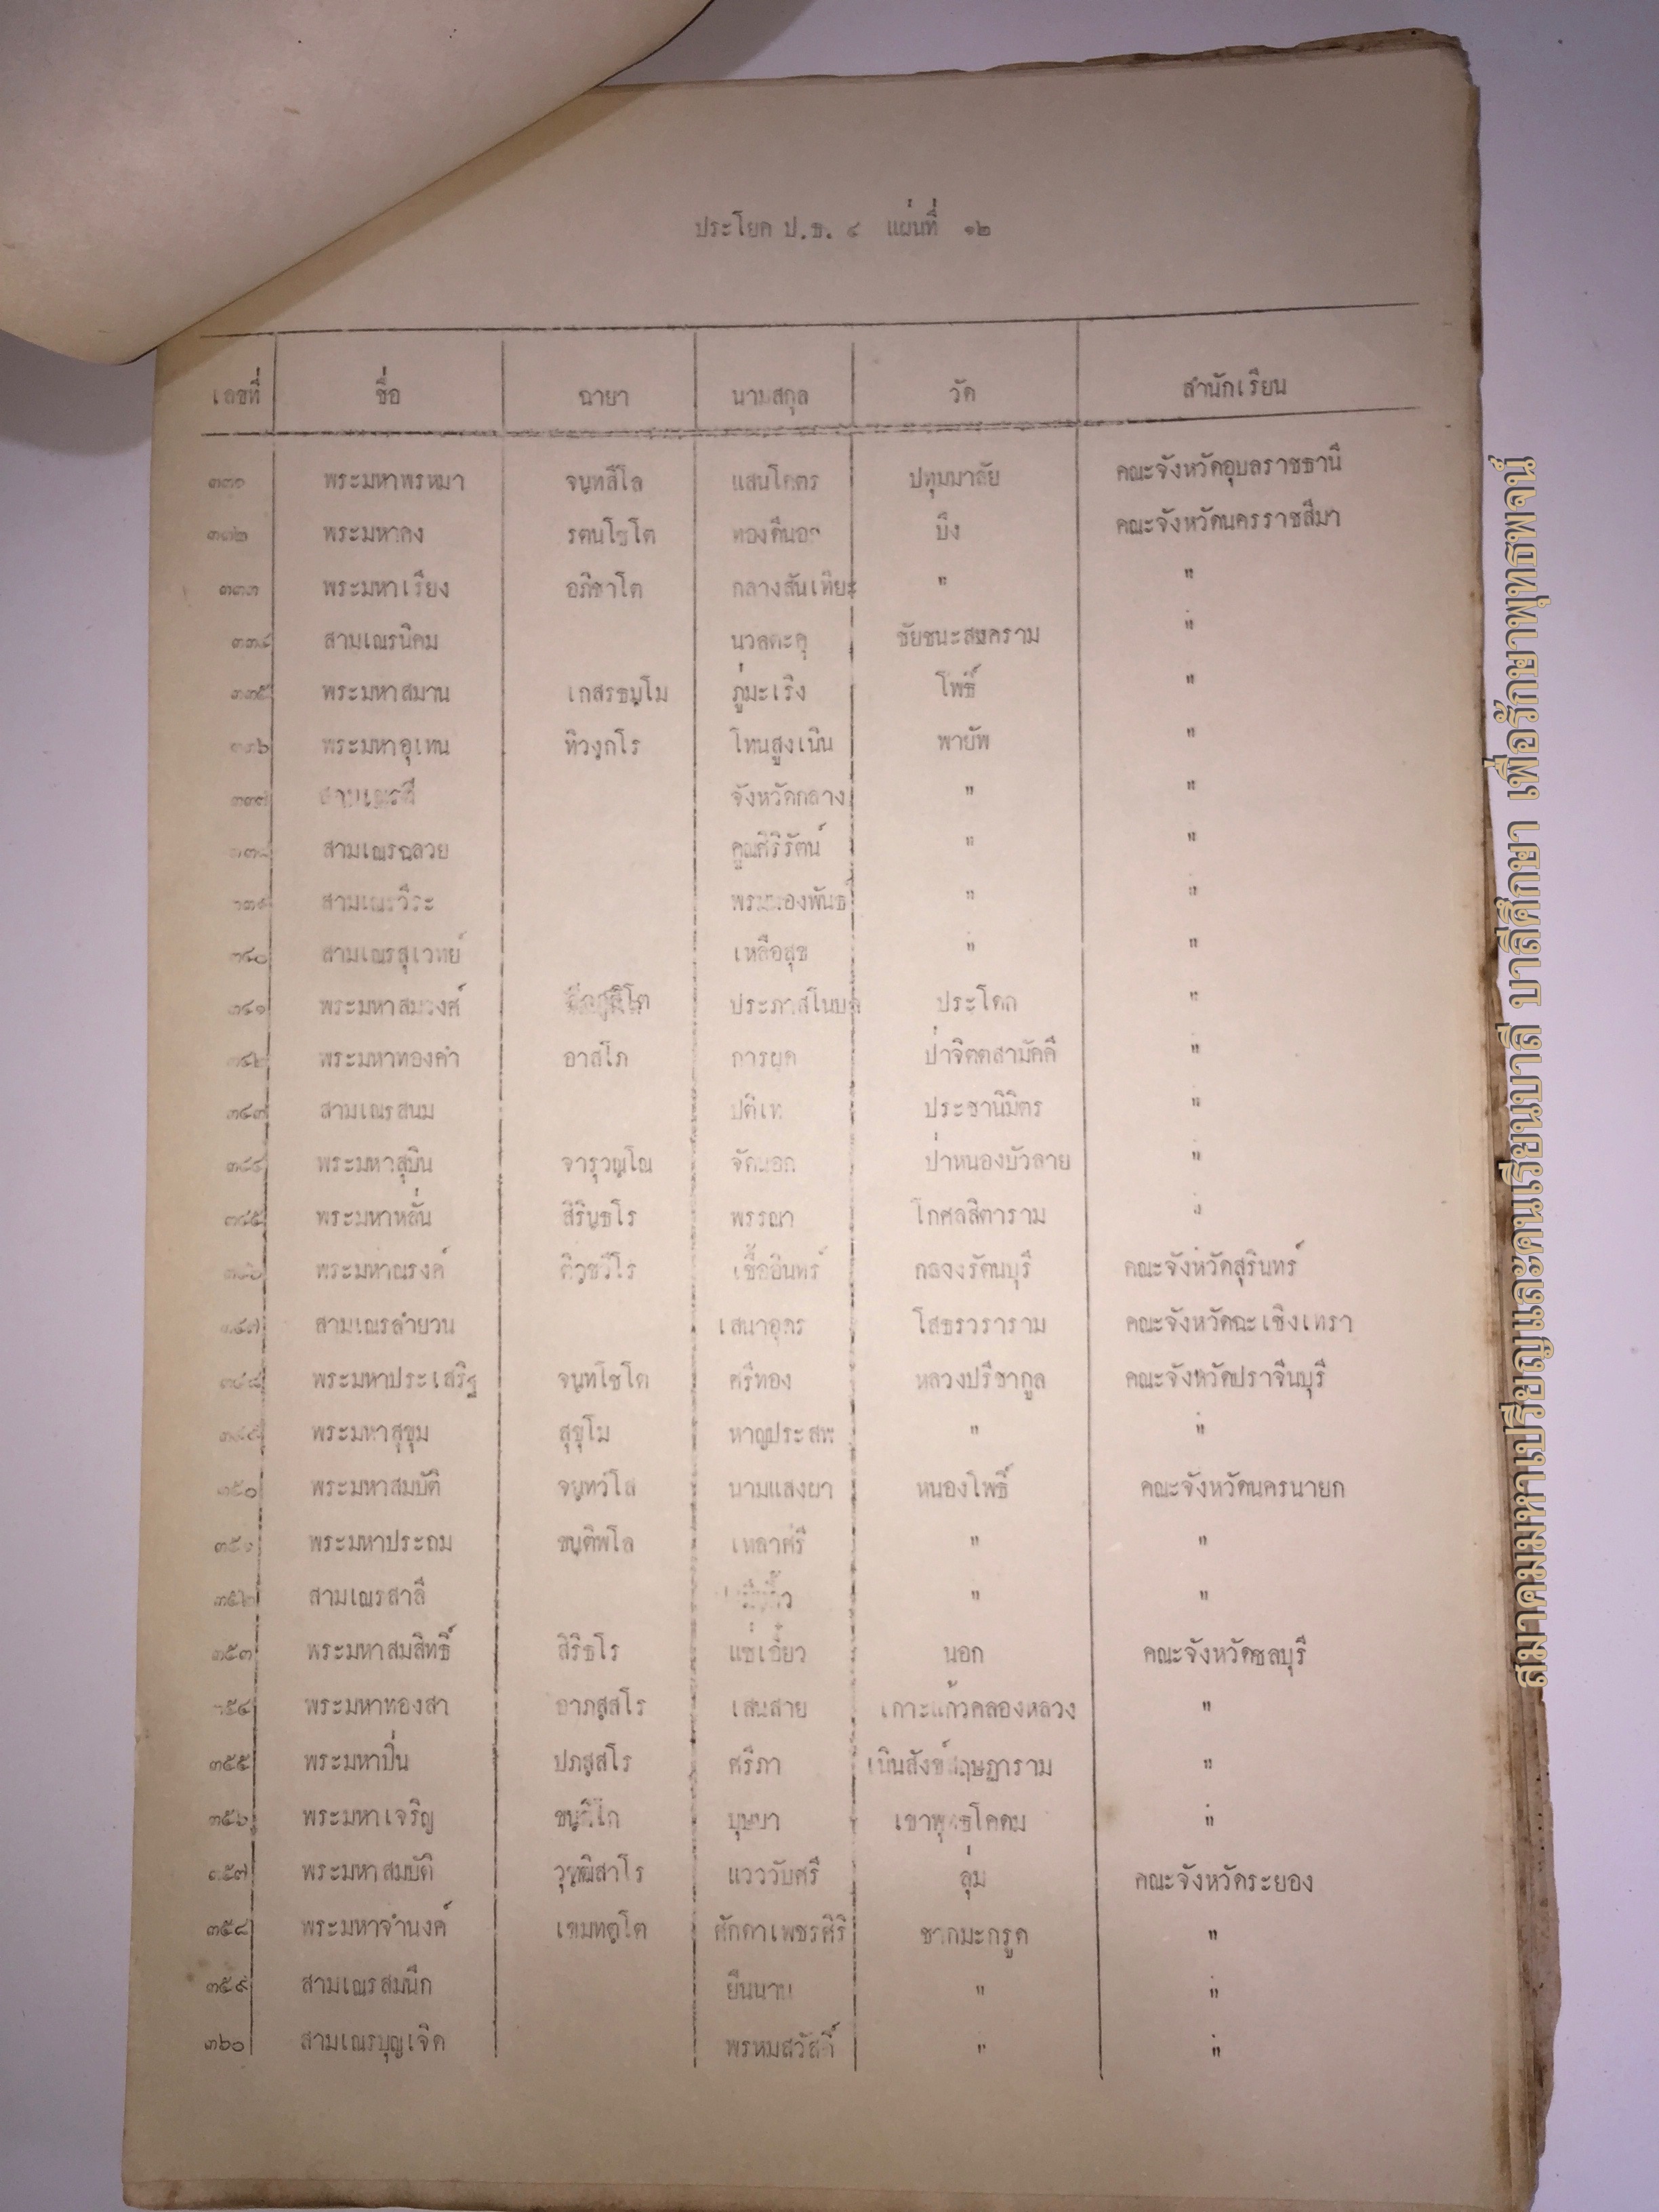 ประโยค ป.ธ. ๔ แผ่นที่ ๑๒
เลขที่ ชื่อ ฉายา นามสกุล วัด สำนักเรียน
พระมหาพรหมา จนฺทสีโล แสนโคตร ปทุมมาลัย คณะจังหวัดอุบลราชธานี
๓๓๒ พระมหาคง รตนโชโต บึง คณะจังหวัดนครราชสีมา
๓๓๓ พระมหาเรียง อภิชาโต กลางสันเทียะ " "
๓๓๔ สามเณรนิคม นวลตะคุ ชัยชนะสงคราม "
๓๓๕ พระมหาสมาน เกสรธมฺโม ภู่มะเริง โพธิ์ "
๓๓๖ พระมหาอุเทน ทิวงฺกโร โทนสูงเนิน พายัพ "
๓๓๗ จังหวัดกลาง " "
๓๓๘ สามเณรฉลวย คูณศิริรัตน์ " "
๓๓๙ สามเณรวีระ " "
๓๔๐ สามเณรสุเวทย์ เหลือสุข " "
๓๔๑ พระมหาสมวงศ์ ประโดก "
๓๔๒ พระมหาทองคำ อาสโภ การผุด ป่าจิตตสามัคคี "
๓๔๓ สามเณรสนม ประชานิมิตร "
๓๔๔ พระมหาสุบิน จารุวณฺโณ ป่าหนองบัวลาย "
๓๔๕ พระมหาหลั่น สิรินฺธโร พรรณา โกศลสิตาราม "
๓๔๖ พระมหาณรงค์ เชื้ออินทร์ กลางรัตนบุรี คณะจังหวัดสุรินทร์
๓๔๗ สามเณรลำยวน เสนาอุดร โสธรวราราม คณะจังหวัดฉะเชิงเทรา
๓๔๘ พระมหาประเสริฐ จนฺทโชโต ศรีทอง หลวงปรีชากูล คณะจังหวัดปราจีนบุรี
๓๔๙ พระมหาสุขุม สุขุโม หาญประสพ " "
๓๕๐ พระมหาสมบัติ จนฺทวํโส นามแสงผา หนองโพธิ์ คณะจังหวัดนครนายก
๓๕๑ พระมหาประถม ขนฺติพโล เหลาศรี " "
๓๕๒ สามเณรสาลี " "
๓๕๓ พระมหาสมสิทธิ์ สิริธโร แซ่เอี้ยว นอก คณะจังหวัดชลบุรี
๓๕๔ พระมหาทองสา อาภสฺสโร เสนสาย เกาะแก้วคลองหลวง "
๓๕๕ พระมหาปิ่น ปภสฺสโร ศรีภา "
๓๕๖ พระมหาเจริญ บุษบา เขาพุทธโคดม "
๓๕๗ พระมหาสมบัติ วุฑฺฒิสาโร แวววับศรี ลุ่ม คณะจังหวัดระยอง
๓๕๘ พระมหาจำนงค์ เขมทตฺโต ศักดาเพชรศิริ ชากมะกรูด "
๓๕๙ สามเณรสมนึก ยืนนาน " "
๓๖๐ สามเณรบุญเจิด พรหมสวัสดิ์ " "
สมาคมมหาเปรียญและคนเรียนบาลี บาลีศึกษา เพื่อรักษาพุทธพจน์